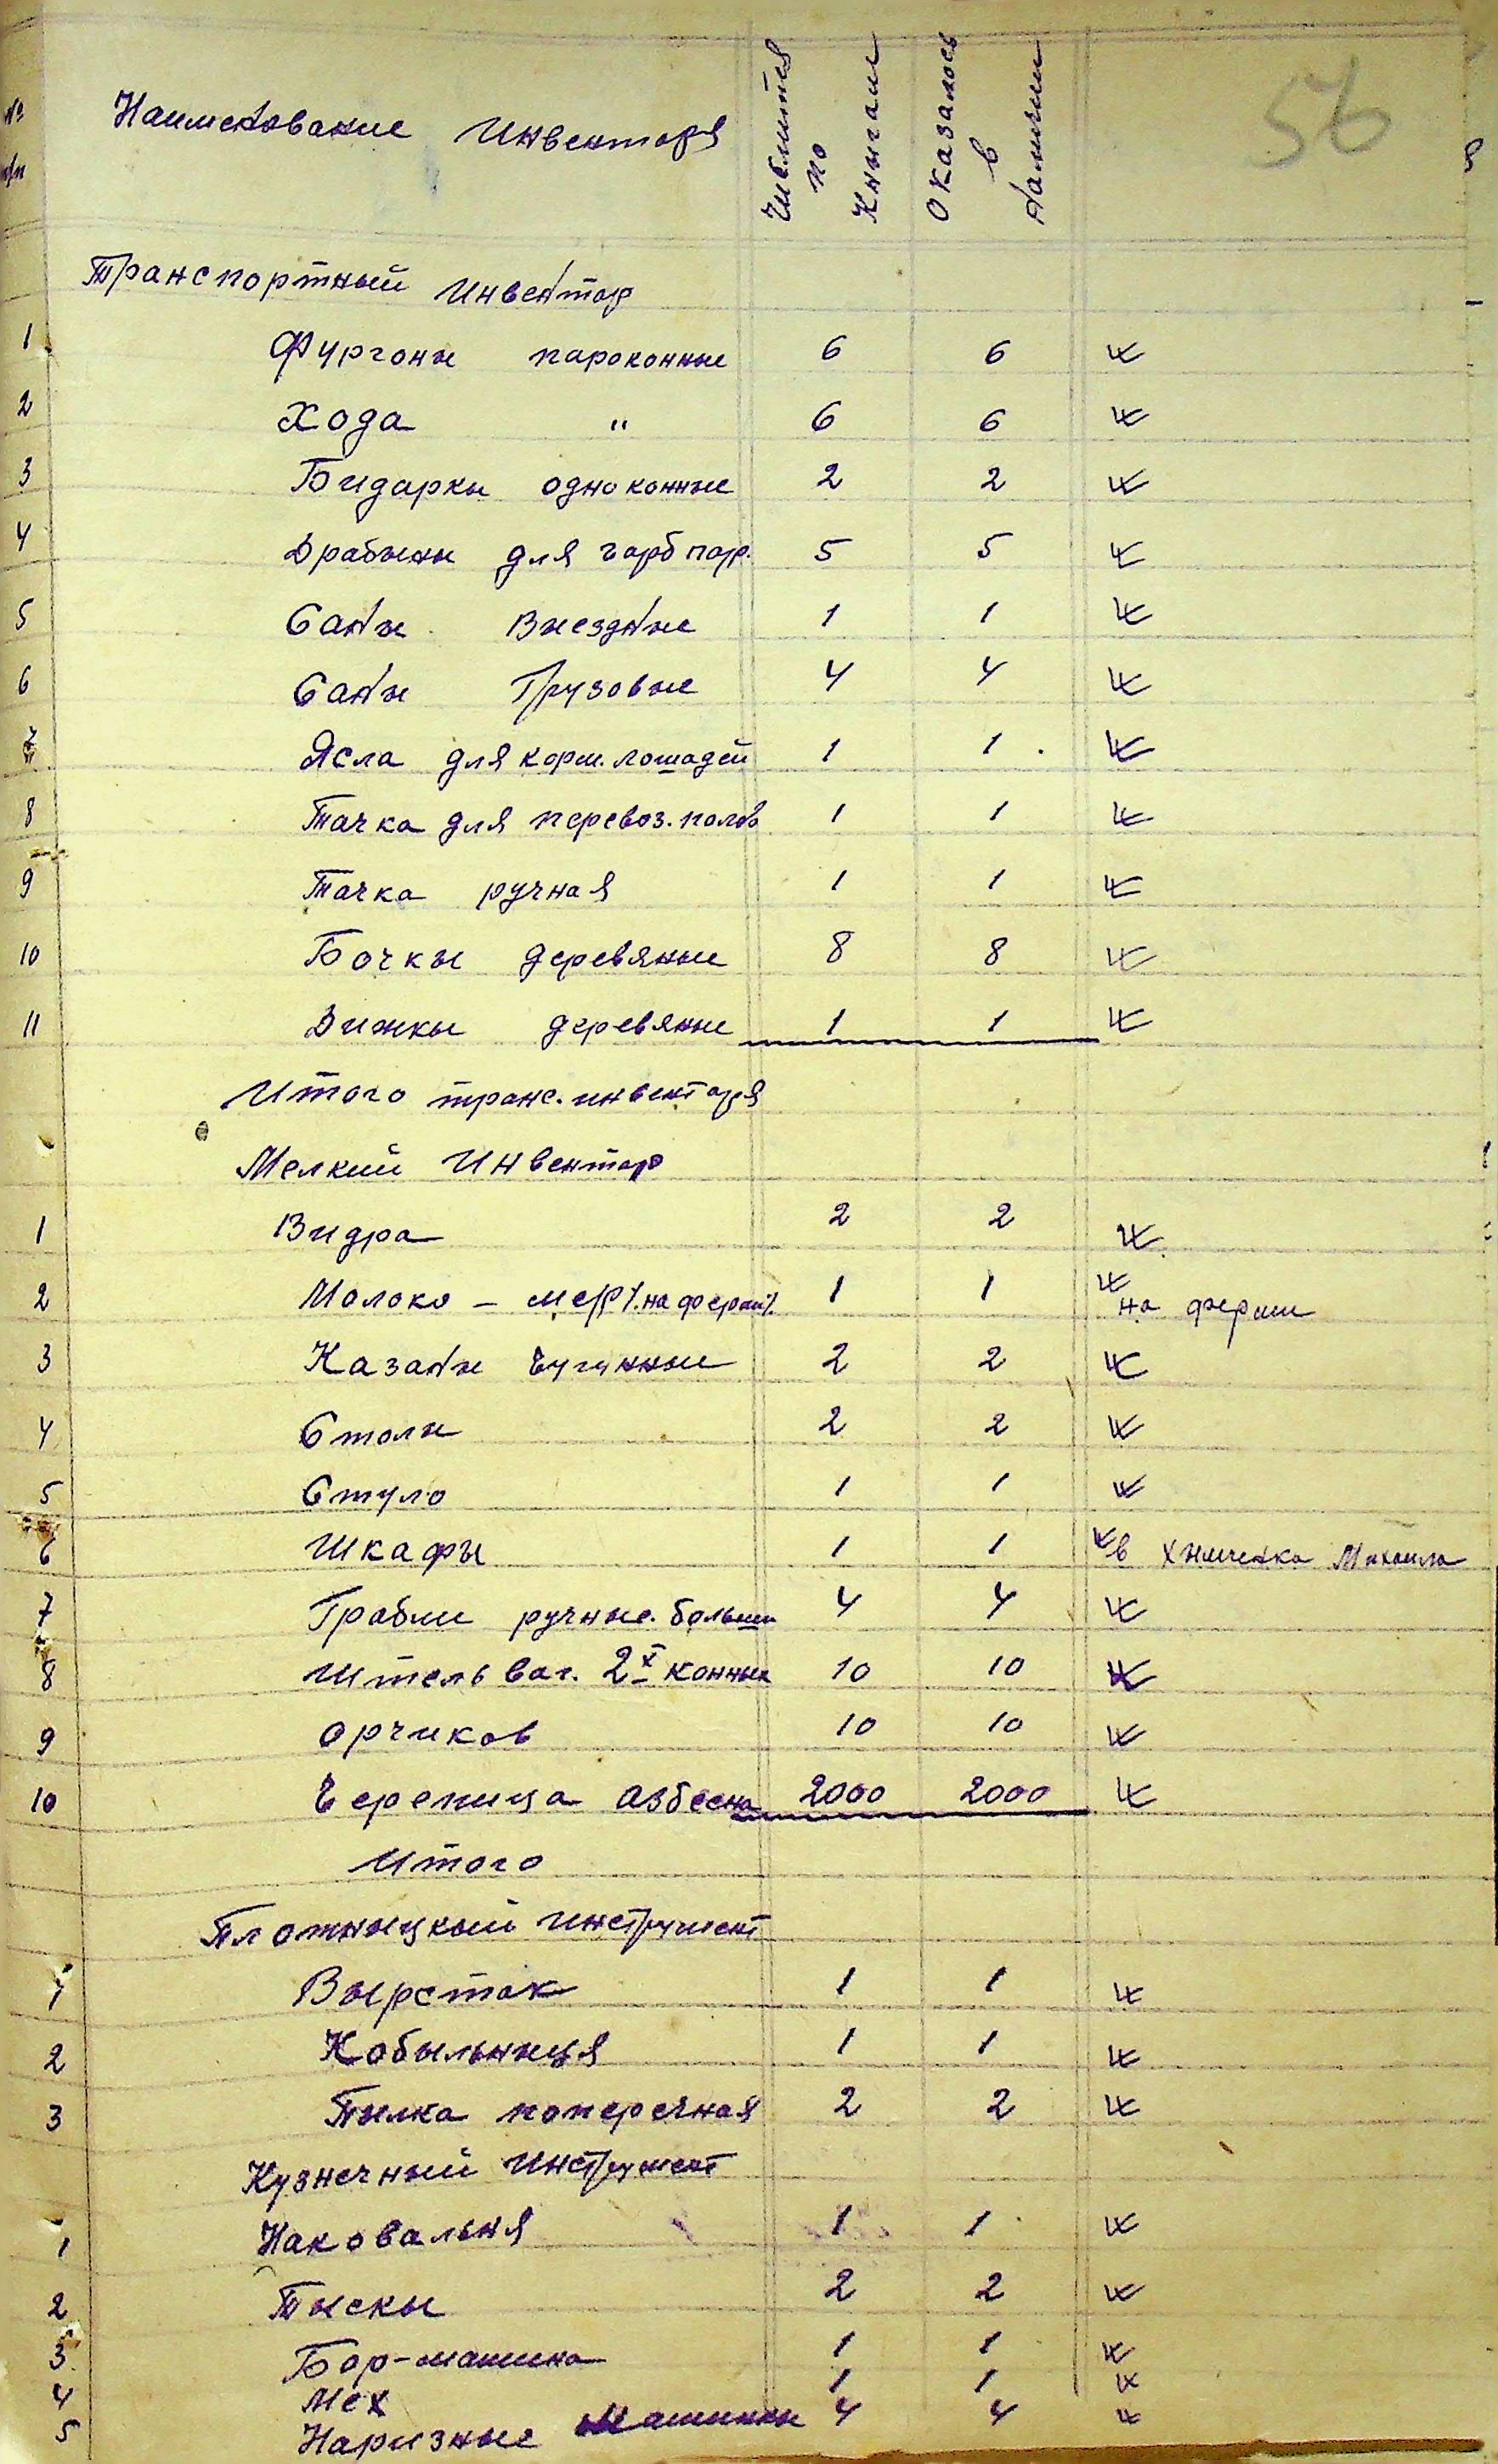 56
№ п/п Наименование Инвентаря Числится по Книгам Оказалось в Наличии
Транспортный Инвентар
1 Фургоны пароконные 6 6
2 Хода " 6 6
3 Бидаркы одноконные 2 2
4 Драбыны для гарб пар. 5 5
5 Саны Выездные 1 1
6 Саны Грузовые 4 4
7 Ясла для корм. лошадей 1 1
8 Тачка для перевоз. полов 1 1
9 Тачка ручная 1 1
10 Бочкы деревяные 8 8
11 Дижкы деревяные 1 1
Итого транс. инвентаря
Мелкий Инвентар
1 Видра 2 2
2 Молоко - мер /.на ферми/. 1 1 на ферми
3 Казаны Чугунные 2 2
4 Столы 2 2
5 Стуло 1 1
6 Шкафы 1 1 в Химченка Михаила
7 Грабли ручные. больши 4 4
8 Штельваг. 2х конных 10 10
9 Орчиков 10 10
10 Черепица азбесна 2000 2000
Итого
Плотныцкый Инструмент
1 Вырстак 1 1
2 Кобыльныця 1 1
3 Пылка поперечная 2 2
Кузнечный Инструмент
1 Наковальня 1 1
2 Тыскы 2 2
3 Бор-машина 1 1
4 Мех 1 1
5 Наризные машинкы 4 4